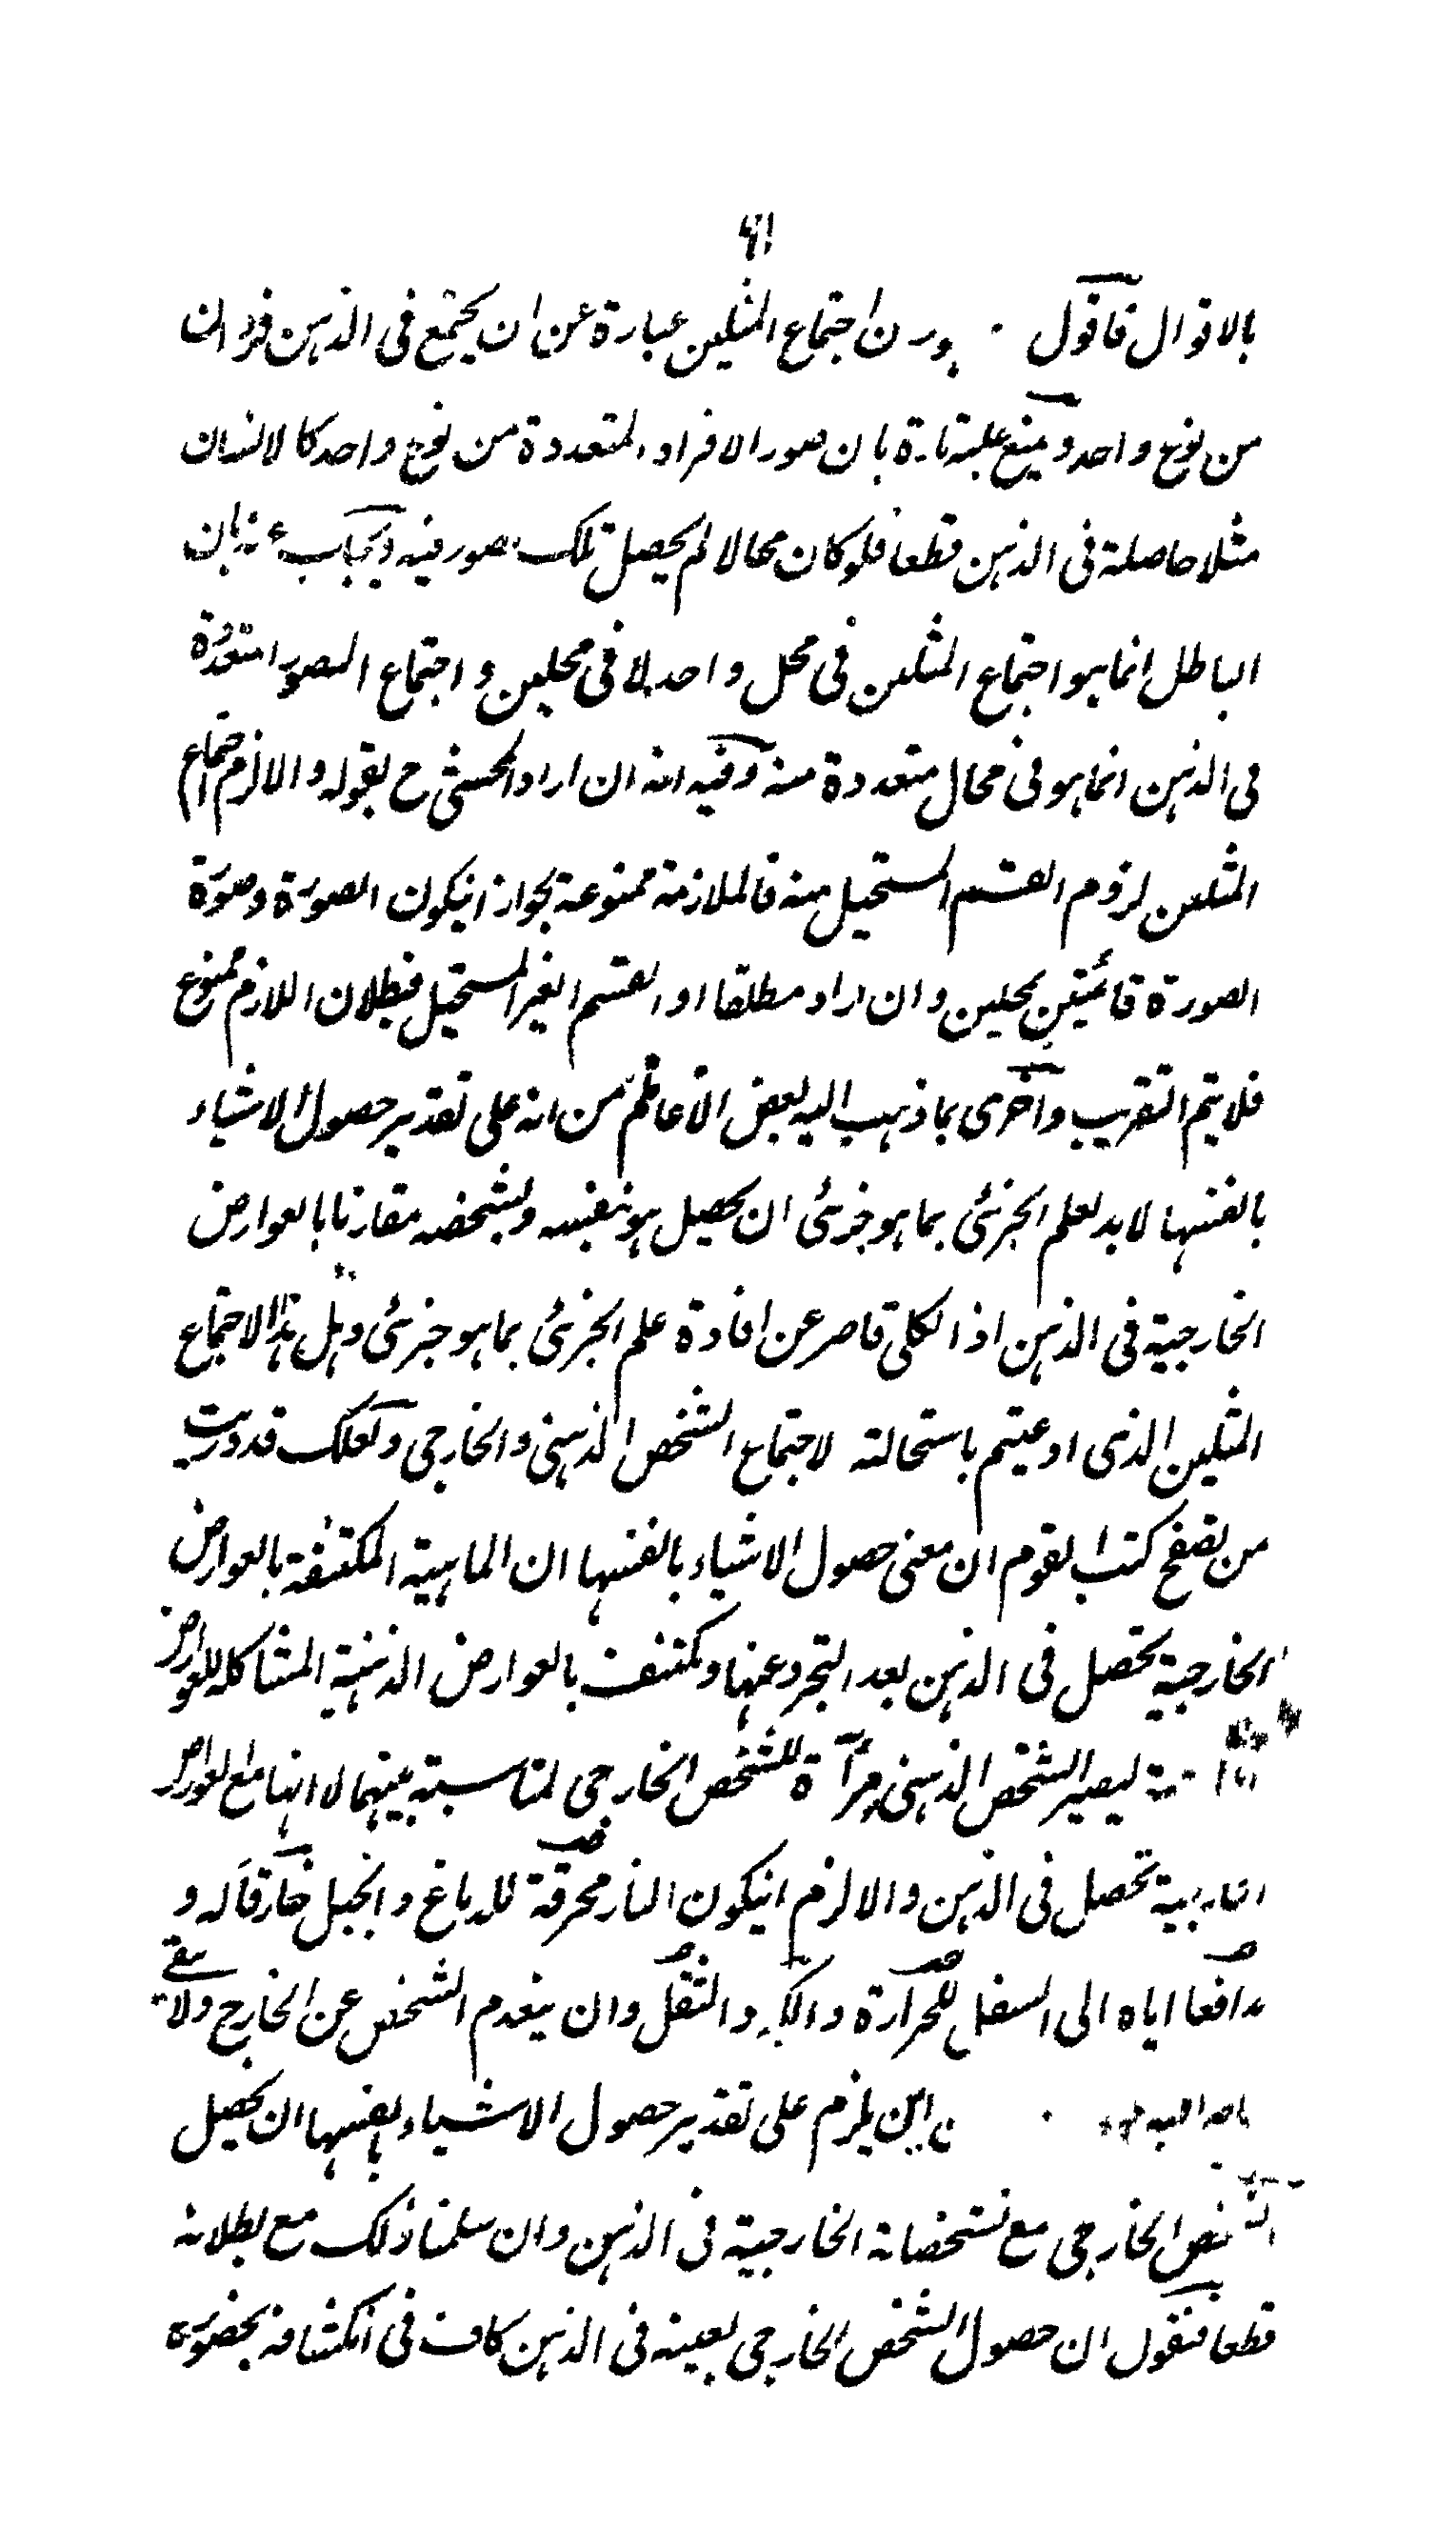 ٦١
بالاقوال فاقول ن اجتماع المثلين عبارة عن ان يجتمع فى الذهن فردان
من نوع واحد ويمنع عليته تارة بان صور الافراد المتعددة من نوع واحد كالانسان
مثلا حاصلة فى الذهن قطعا فلو كان محالا لم يحصل تلك الصور فيه ويجاب عنه بان
الباطل انما هو اجتماع المثلين فى محل واحد لا فى محلين واجتماع الصور المتعددة
فى الذهن انما هو فى محال متعددة منه وفيه انه ان اراد المحشى رح بقوله والا لزم اجتماع
المثلين لزوم القسم المستحيل منه فالملازمة ممنوعة لجواز ان يكون الصورة وصورة
الصورة قائمتين بمحلين وان اراد مطلقا او القسم الغير المستحيل فبطلان اللازم ممنوع
فلا يتم التقريب واخرى بما ذهب اليه بعض الاعاظم من انه على تقدير حصول الاشياء
بانفسها لابد لعلم الجزئى بما هو جزئى ان يحصل هو بنفسه وبشخصه مقارنا بالعوارض
الخارجية فى الذهن اذ الكلى قاصر عن افادة علم الجزئى بما هو جزئى وهل هذا الا اجتماع
المثلين الذى ادعيتم باستحالته لاجتماع الشخص الذهنى والخارجى ولعلك قد دريت
من تصفح كتب القوم ان معنى حصول الاشياء بانفسها ان الماهية المكتنفة بالعوارض
الخارجية تحصل فى الذهن بعد التجرد عنها وتكتنف بالعوارض الذهنية المشاكلة للعوارض
ليصير الشخص الذهنى مرآة للشخص الخارجى لمناسبة بينهما لا انها مع العوارض
الخارجية تحصل فى الذهن والا لزم ان يكون النار محرقة للدماغ والجبل خارقا له و
دافعا اياه الى السفل للحرارة والكبر والثقل وان ينعدم الشخص عن الخارج ولا يبقى
اين يلزم على تقدير حصول الاشياء بانفسها ان يحصل
الشخص الخارجى مع تشخصاته الخارجية فى الذهن وان سلمنا ذلك مع بطلانه
قطعا فنقول ان حصول الشخص الخارجى بعينه فى الذهن كاف فى انكشافه بحضوره